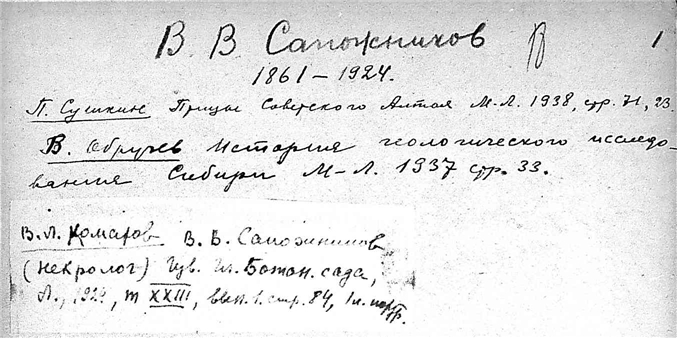 В. В. Сапожников 1
1861 – 1924.
П. Сушкин Птицы Советского Алтая М-Л. 1938, стр. 71, 23.
В. Обручев История геологического исследо-
вания Сибири М-Л. 1937 стр. 33.
В.Л. Комаров В. В. Сапожников
(некролог) Изв. Гл. Ботан. сада,
Л., 1924, т XXIII, вып. 1. стр. 84, 1 п. портр.